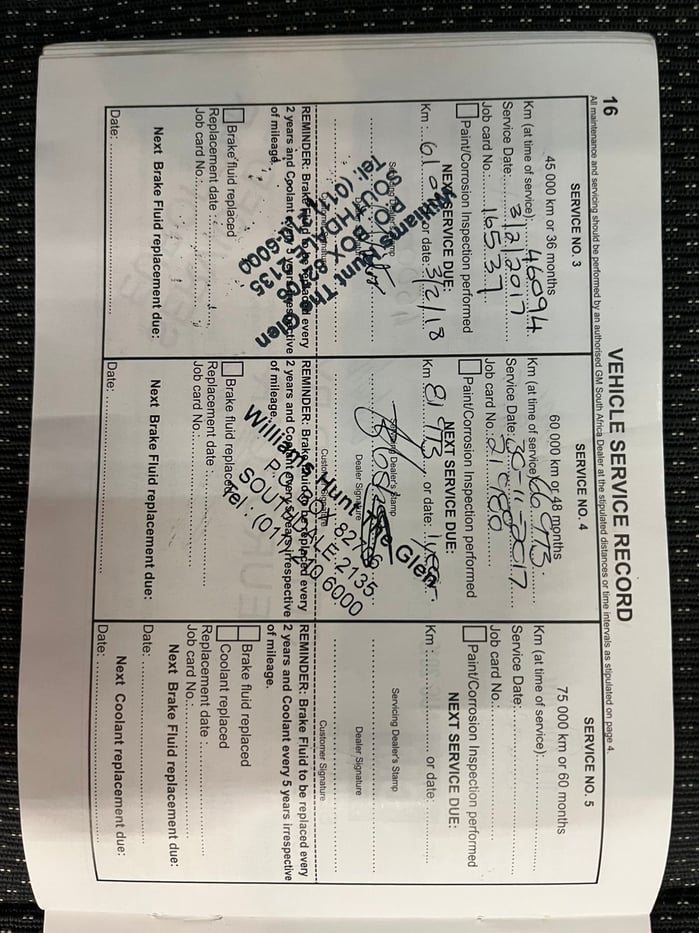 16
VEHICLE SERVICE RECORD
All maintenance and servicing should be performed by an authorised GM South Africa Dealer at the stipulated distances or time intervals as stipulated on page 4.
SERVICE NO. 3
45 000 km or 36 months
Km (at time of service): 46094
Service Date: 3/2/2017
Job card No. 16537
Paint/Corrosion Inspection performed
NEXT SERVICE DUE:
Km: or date: 3/2/18
Williams Hunt The Glen
P.O. BOX 82
SOUTHDALE 2135
REMINDER: Brake Fluid to be replaced every
2 years and Coolant every 5 years irrespective
of mileage.
Brake fluid replaced
Replacement date:
Job card No.:
Next Brake Fluid replacement due:
Date:
SERVICE NO. 4
60 000 km or 48 months
Km (at time of service) 66973
Service Date: 30-11-2017
Job card No.: 21080
Paint/Corrosion Inspection performed
NEXT SERVICE DUE:
Km: 81973 or date:
Servicing Dealer's Stamp
Dealer Signature
Customer Signature
Williams Hunt The Glen
P.O. BOX 82
SOUTHDALE 2135
Tel: (011) 6000
REMINDER: Brake Fluid to be replaced every
2 years and Coolant every 5 years irrespective
of mileage.
Brake fluid replaced
Replacement date:
Job card No.:
Next Brake Fluid replacement due:
Date:
SERVICE NO. 5
75 000 km or 60 months
Km (at time of service):
Service Date:
Job card No.:
Paint/Corrosion Inspection performed
NEXT SERVICE DUE:
Km: or date:
Servicing Dealer's Stamp
Dealer Signature
Customer Signature
REMINDER: Brake Fluid to be replaced every
2 years and Coolant every 5 years irrespective
of mileage.
Brake fluid replaced
Coolant replaced
Replacement date:
Job card No.:
Next Brake Fluid replacement due:
Date:
Next Coolant replacement due:
Date: